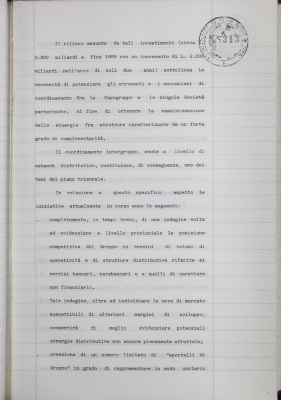 5313
Il rilievo assunto da tali investimenti (circa
3.400 miliardi a fine 1989 con un incremento di L. 2.000
miliardi nell'arco di soli due anni) sottolinea la
necessità di potenziare gli strumenti e i meccanismi di
coordinamento fra la Capogruppo e le singole Società
partecipate, al fine di ottenere la massimizzazione
delle sinergie fra strutture caratterizzate da un forte
grado di complementarità.
Il coordinamento intergruppo, anche a livello di
network distributivo, costituisce, di conseguenza, uno dei
temi del piano triennale.
In relazione a questo specifico aspetto le
iniziative attualmente in corso sono le seguenti:
- completamento, in tempi brevi, di una indagine volta
ad evidenziare a livello provinciale la posizione
competitiva del Gruppo in termini di volumi di
operatività e di strutture distributive riferite ai
servizi bancari, parabancari e a quelli di carattere
non finanziario.
Tale indagine, oltre ad individuare le aree di mercato
suscettibili di ulteriori margini di sviluppo,
consentirà di meglio evidenziare potenziali
sinergie distributive non ancora pienamente sfruttate;
- creazione di un numero limitato di "sportelli di
Gruppo" in grado di rappresentare in modo unitario